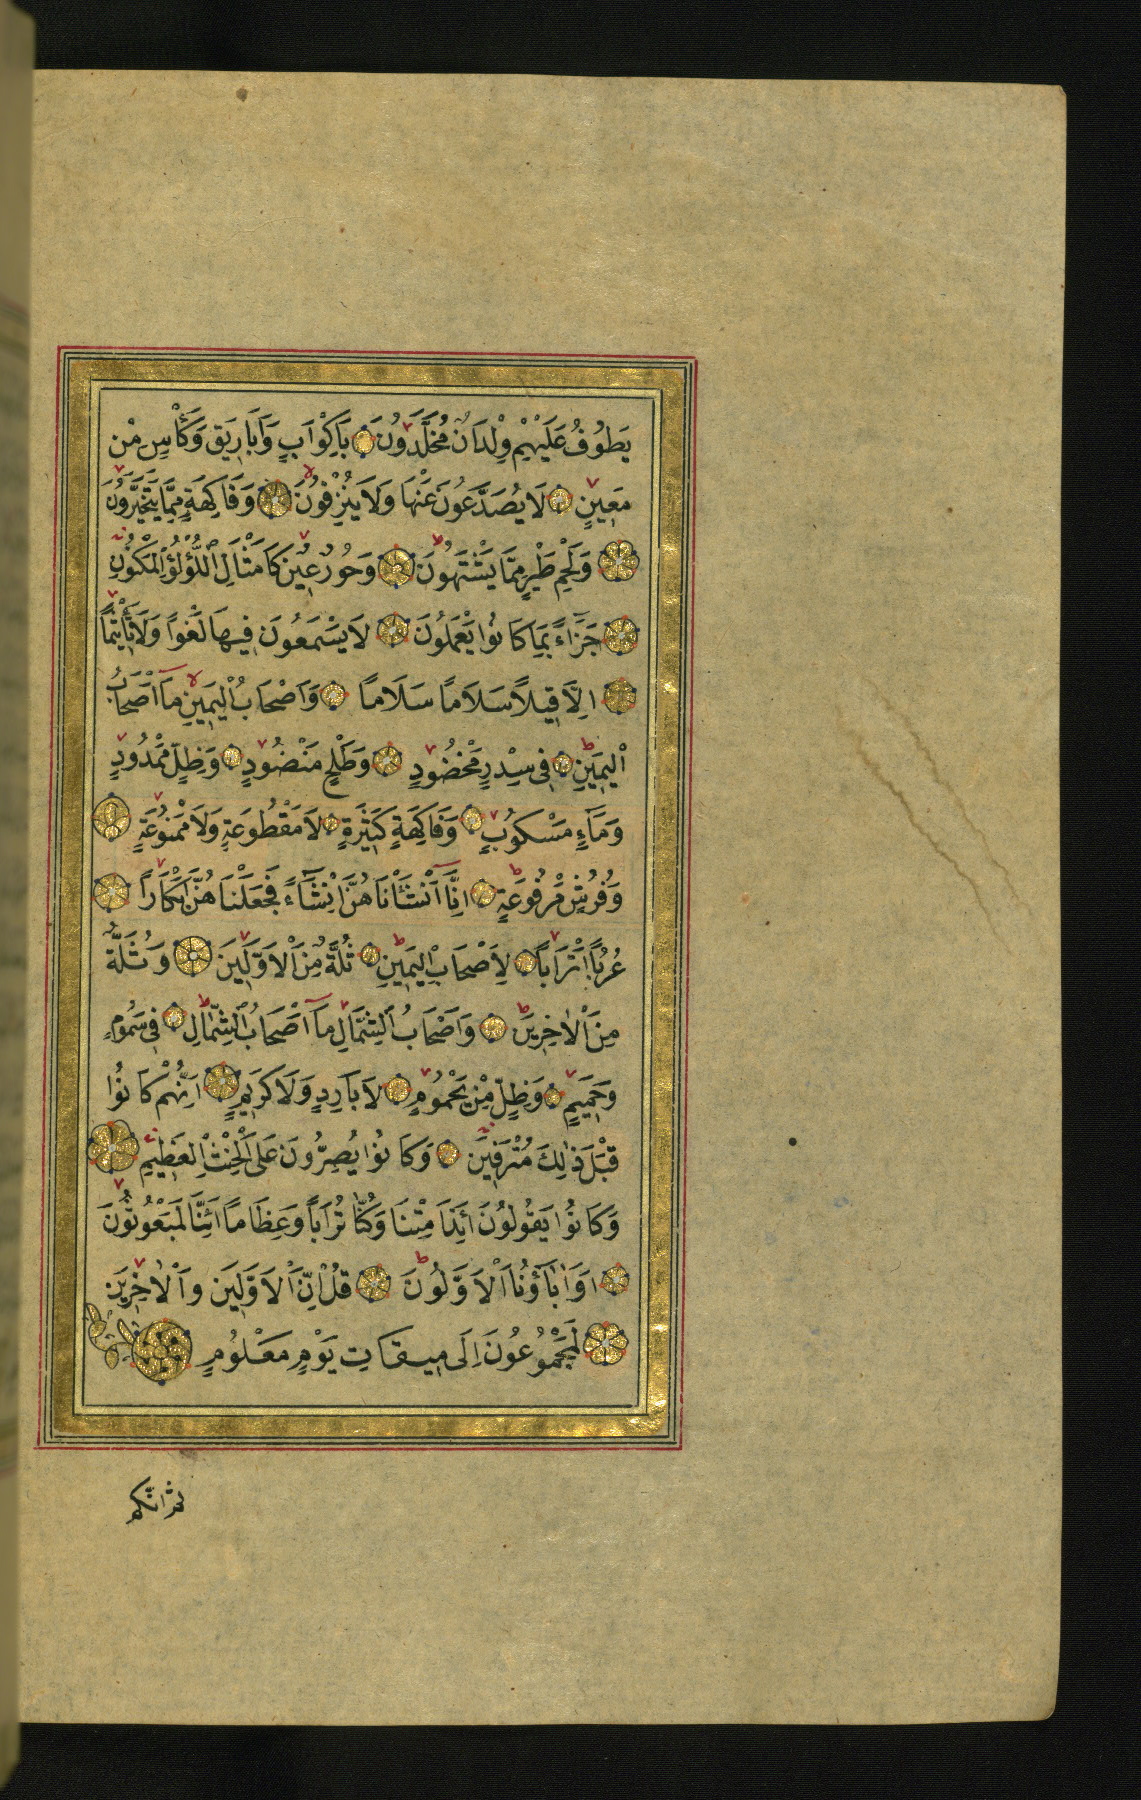 يَطُوفُ عَلَيْهِمْ وِلْدَانٌ مُخَلَّدُونَ بِاَكْوَابٍ وَاَبَارِيقَ وَكَأْسٍ مِنْ
مَعِينٍ لَا يُصَدَّعُونَ عَنْهَا وَلَا يُنْزِفُونَ وَفَاكِهَةٍ مِمَّا يَتَخَيَّرُونَ
وَلَحْمِ طَيْرٍ مِمَّا يَشْتَهُونَ وَحُورٌ عِينٌ كَاَمْثَالِ اللُّؤْلُؤِ الْمَكْنُونِ
جَزَاءً بِمَا كَانُوا يَعْمَلُونَ لَا يَسْمَعُونَ فِيهَا لَغْوًا وَلَا تَأْثِيمًا
اِلَّا قِيلًا سَلَامًا سَلَامًا وَاَصْحَابُ الْيَمِينِ مَا اَصْحَابُ
الْيَمِينِ فِي سِدْرٍ مَخْضُودٍ وَطَلْحٍ مَنْضُودٍ وَظِلٍّ مَمْدُودٍ
وَمَاءٍ مَسْكُوبٍ وَفَاكِهَةٍ كَثِيرَةٍ لَا مَقْطُوعَةٍ وَلَا مَمْنُوعَةٍ
وَفُرُشٍ مَرْفُوعَةٍ اِنَّا اَنْشَأْنَاهُنَّ اِنْشَاءً فَجَعَلْنَاهُنَّ اَبْكَارًا
عُرُبًا اَتْرَابًا لِاَصْحَابِ الْيَمِينِ ثُلَّةٌ مِنَ الْاَوَّلِينَ وَثُلَّةٌ
مِنَ الْاٰخِرِينَ وَاَصْحَابُ الشِّمَالِ مَا اَصْحَابُ الشِّمَالِ فِي سَمُومٍ
وَحَمِيمٍ وَظِلٍّ مِنْ يَحْمُومٍ لَا بَارِدٍ وَلَا كَرِيمٍ اِنَّهُمْ كَانُوا
قَبْلَ ذٰلِكَ مُتْرَفِينَ وَكَانُوا يُصِرُّونَ عَلَى الْحِنْثِ الْعَظِيمِ
وَكَانُوا يَقُولُونَ اَئِذَا مِتْنَا وَكُنَّا تُرَابًا وَعِظَامًا اَئِنَّا لَمَبْعُوثُونَ
اَوَاٰبَاؤُنَا الْاَوَّلُونَ قُلْ اِنَّ الْاَوَّلِينَ وَالْاٰخِرِينَ
لَمَجْمُوعُونَ اِلَى مِيقَاتِ يَوْمٍ مَعْلُومٍ
ثم انكم